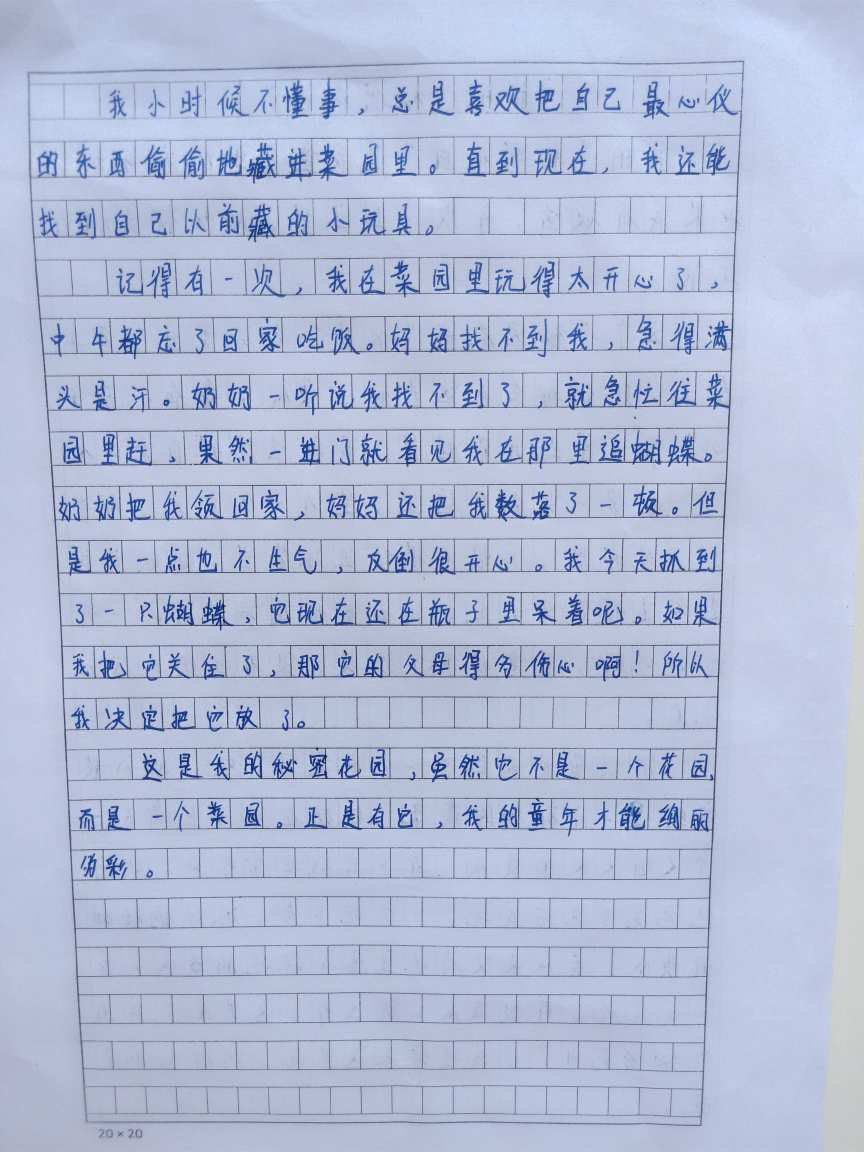 我小时候不懂事，总是喜欢把自己最心仪
的东西偷偷地藏进菜园里。直到现在，我还能
找到自己以前藏的小玩具。
记得有一次，我在菜园里玩得太开心了，
中午都忘了回家吃饭。妈妈找不到我，急得满
头是汗。奶奶一听说我找不到了，就急忙往菜
园里赶，果然一进门就看见我在那里追蝴蝶。
奶奶把我领回家，妈妈还把我数落了一顿。但
是我一点也不生气，反倒很开心。我今天抓到
了一只蝴蝶，它现在还在瓶子里呆着呢。如果
我把它关住了，那它的父母得多伤心啊！所以
我决定把它放了。
这是我的秘密花园，虽然它不是一个花园，
而是一个菜园。正是有它，我的童年才能绚丽
多彩。
20×20